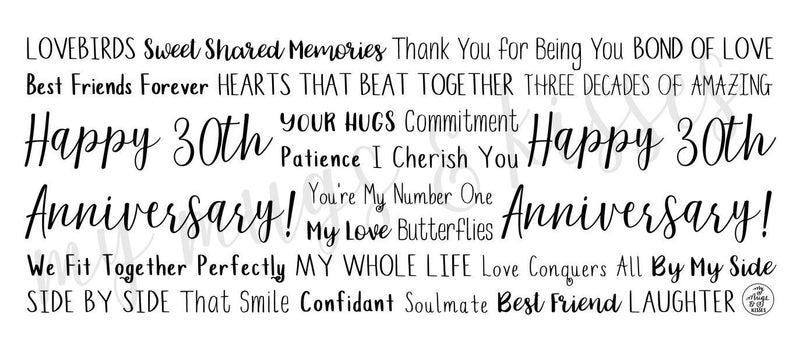 LOVEBIRDS Sweet Shared Memories Thank You for Being You BOND OF LOVE
Best Friends Forever HEARTS THAT BEAT TOGETHER THREE DECADES OF AMAZING
Happy 30th YOUR HUGS Commitment Happy 30th
Patience I Cherish You
Anniversary! You're My Number One Anniversary!
My Love Butterflies
We Fit Together Perfectly MY WHOLE LIFE Love Conquers All By My Side
SIDE BY SIDE That Smile Confidant Soulmate Best Friend LAUGHTER
my mugs & kisses
My Mugs & KISSES